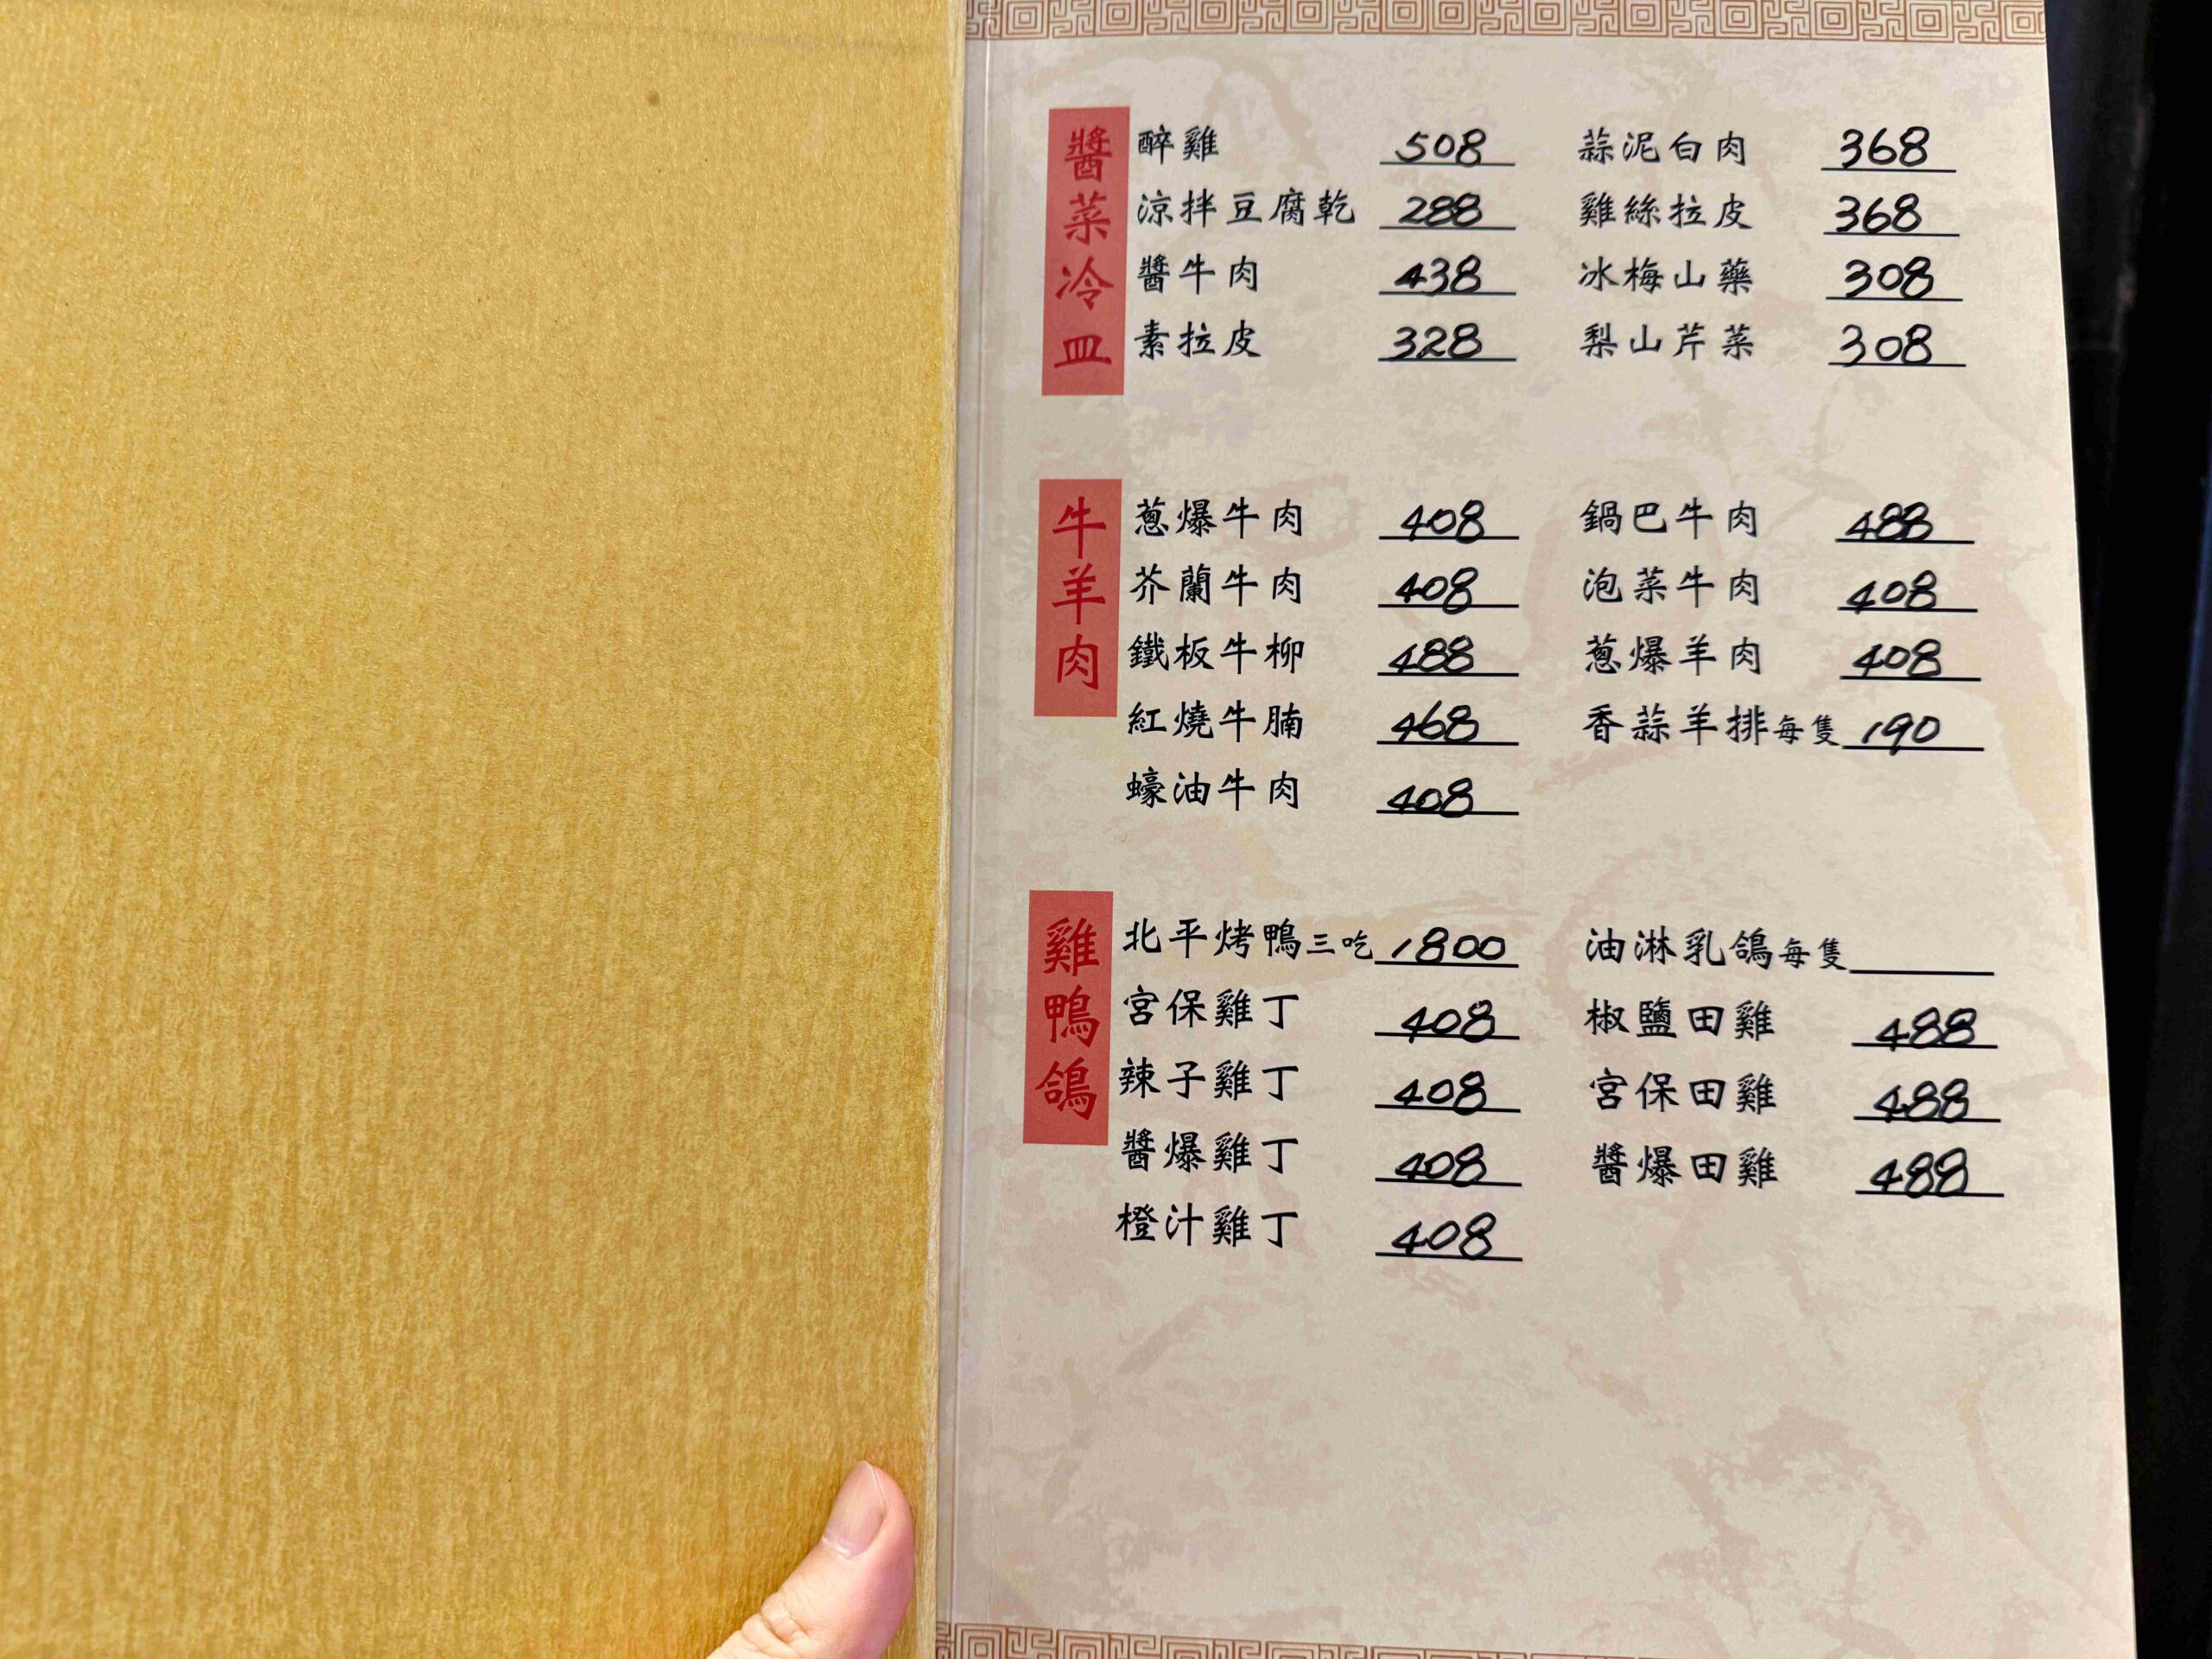 醬菜冷皿
醉雞 508 蒜泥白肉 368
涼拌豆腐乾 288 雞絲拉皮 368
醬牛肉 438 冰梅山藥 308
素拉皮 328 梨山芹菜 308
牛羊肉
蔥爆牛肉 408 鍋巴牛肉 488
芥蘭牛肉 408 泡菜牛肉 408
鐵板牛柳 488 蔥爆羊肉 408
紅燒牛腩 468 香蒜羊排每隻 190
蠔油牛肉 408
雞鴨鴿
北平烤鴨三吃 1800 油淋乳鴿每隻
宮保雞丁 408 椒鹽田雞 488
辣子雞丁 408 宮保田雞 488
醬爆雞丁 408 醬爆田雞 488
橙汁雞丁 408